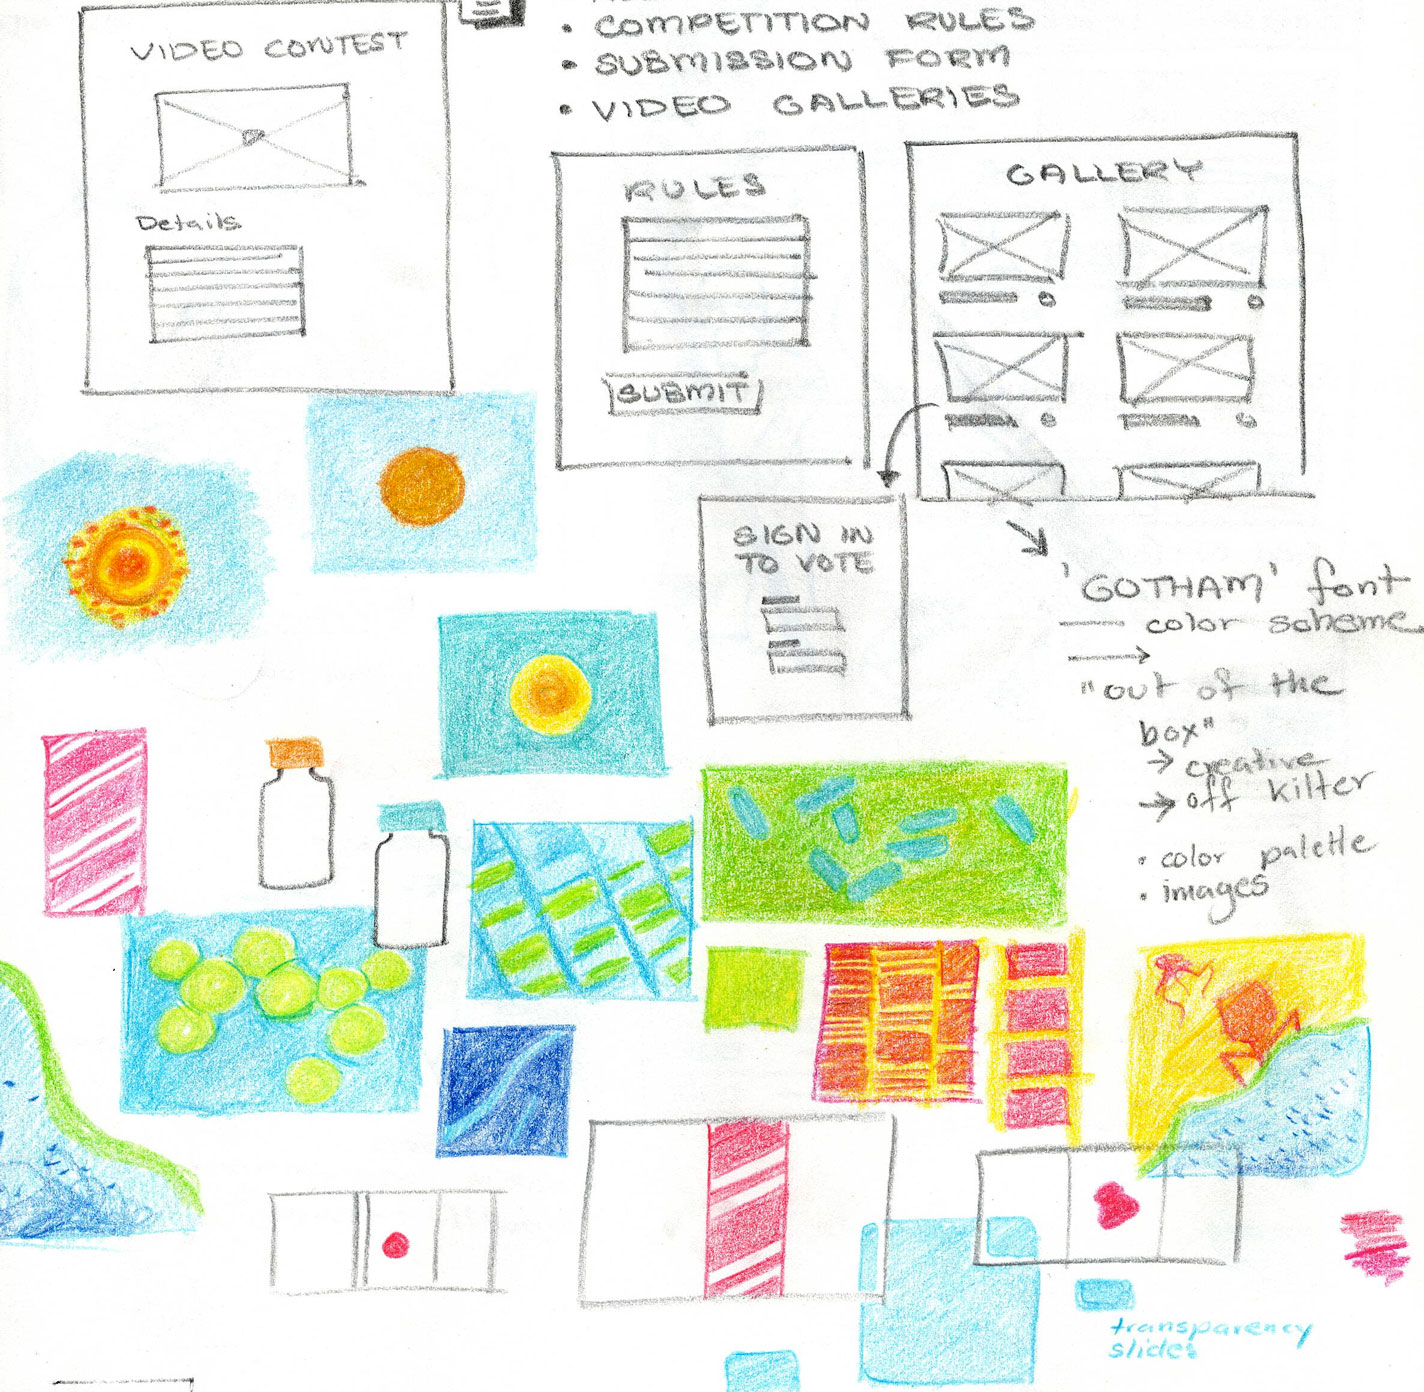 VIDEO CONTEST
Details
• COMPETITION RULES
• SUBMISSION FORM
• VIDEO GALLERIES
RULES
SUBMIT
GALLERY
SIGN IN
TO VOTE
'GOTHAM' font
— color scheme
→
"out of the
box"
→ creative
→ off kilter
• color palette
• images
transparency
slides